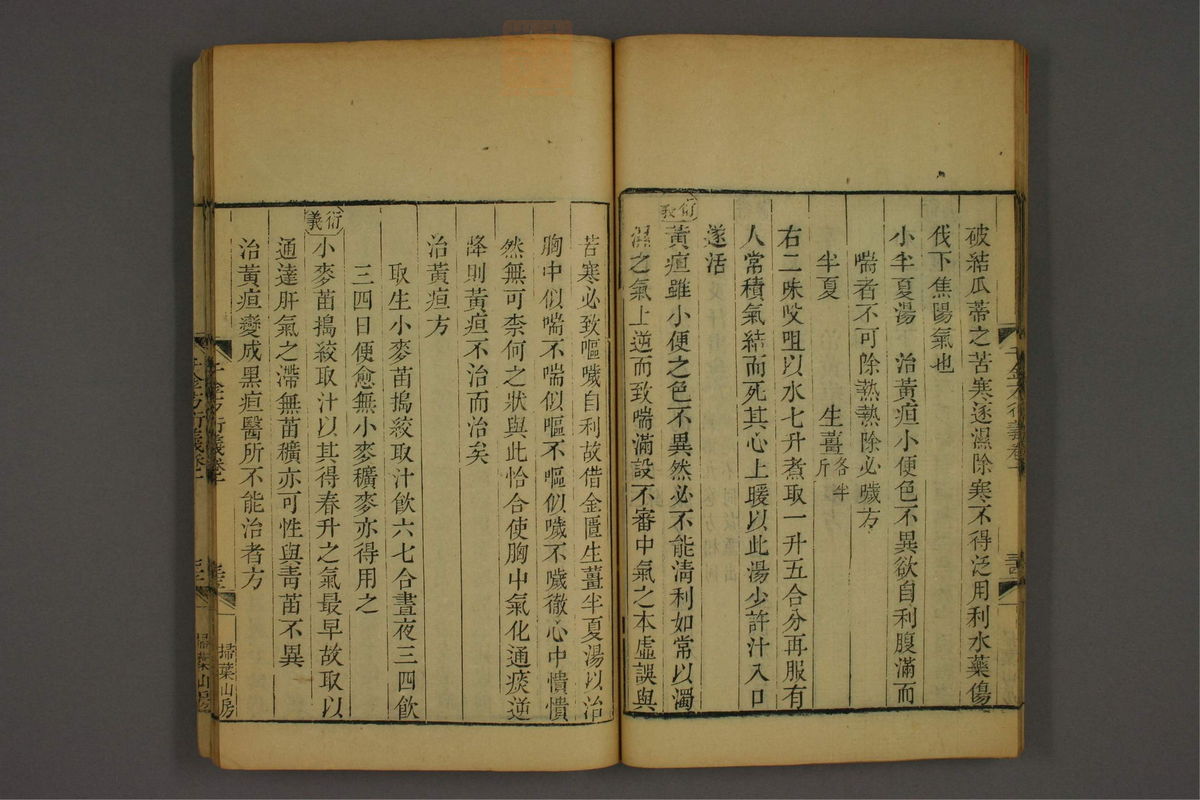 破結瓜蒂之苦寒逐濕除寒不得泛用利水藥傷
伐下焦陽氣也
小半夏湯 治黃疸小便色不異欲自利腹滿而
喘者不可除熱熱除必噦方
半夏 生薑各半斤
右二味㕮咀以水七升煮取一升五合分再服有
人常積氣結而死其心上暖以此湯少許汁入口
遂活
衍義
黃疸雖小便之色不異然必不能淸利如常以濁
濕之氣上逆而致喘滿設不審中氣之本虛誤與
苦寒必致嘔噦自利故借金匱生薑半夏湯以治
胸中似喘不喘似嘔不嘔似噦不噦徹心中憒憒
然無可柰何之狀與此恰合使胸中氣化通痰逆
降則黃疸不治而治矣
治黃疸方
取生小麥苗搗絞取汁飲六七合晝夜三四飲
三四日便愈無小麥穬麥亦得用之
衍義
小麥苗搗絞取汁以其得春升之氣最早故取以
通達肝氣之滯無苗穬亦可性與靑苗不異
治黃疸變成黑疸醫所不能治者方
千金方衍義卷十
掃葉山房